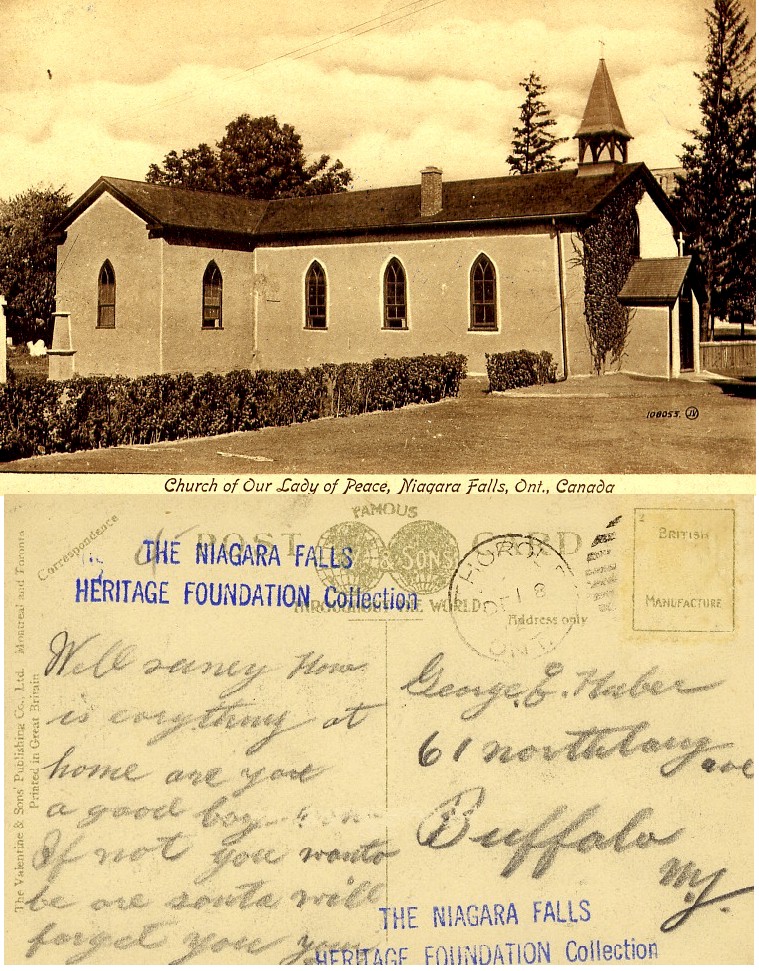 108053. JV
Church of Our Lady of Peace, Niagara Falls, Ont., Canada
Correspondence
FAMOUS
POST CARD
& SONS
THROUGHOUT THE WORLD
Address only
THE NIAGARA FALLS
HERITAGE FOUNDATION Collection
THOROLD
DE 18
ONT.
BRITISH
MANUFACTURE
The Valentine & Sons' Publishing Co., Ltd. Montreal and Toronto
Printed in Great Britain
Well how
is evrything at
home are you
a good boy
If not you wanto
be are santa will
forget you
George. E. Huber
61 northlang ave
Buffalo
N.Y.
THE NIAGARA FALLS
HERITAGE FOUNDATION Collection